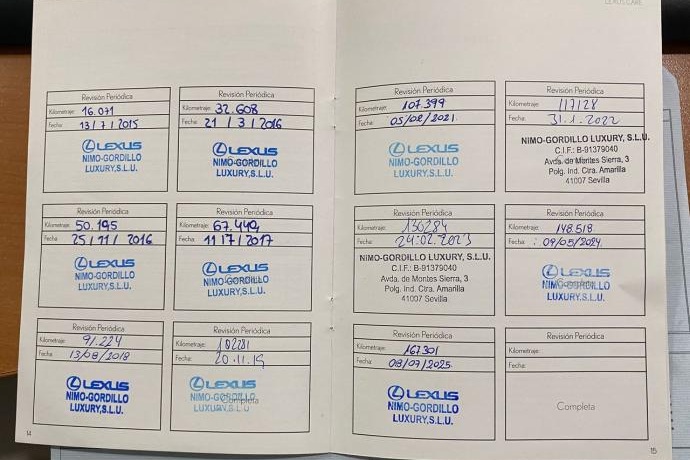 LEXUS CARE
Revisión Periódica
Kilometraje: 16.071
Fecha: 13/7/2015
LEXUS
NIMO-GORDILLO
LUXURY,S.L.U.
Revisión Periódica
Kilometraje: 32.608
Fecha: 21/3/2016
LEXUS
NIMO-GORDILLO
LUXURY,S.L.U.
Revisión Periódica
Kilometraje: 50.195
Fecha: 25/11/2016
LEXUS
NIMO-GORDILLO
LUXURY,S.L.U.
Revisión Periódica
Kilometraje: 67.449
Fecha: 11/7/2017
LEXUS
NIMO-GORDILLO
LUXURY,S.L.U.
Revisión Periódica
Kilometraje: 91.224
Fecha: 13/08/2018
LEXUS
NIMO-GORDILLO
LUXURY,S.L.U.
Revisión Periódica
Kilometraje: 102281
Fecha: 20.11.19
LEXUS
NIMO-GORDILLO
LUXURY,S.L.U.
Completa
14
Revisión Periódica
Kilometraje: 107.399
Fecha: 05/02/2021
LEXUS
NIMO-GORDILLO
LUXURY,S.L.U.
Revisión Periódica
Kilometraje: 117128
Fecha: 31.1.2022
NIMO-GORDILLO LUXURY, S.L.U.
C.I.F.: B-91379040
Avda. de Montes Sierra, 3
Polg. Ind. Ctra. Amarilla
41007 Sevilla
Revisión Periódica
Kilometraje: 130284
Fecha: 24.02.2023
NIMO-GORDILLO LUXURY, S.L.U.
C.I.F.: B-91379040
Avda. de Montes Sierra, 3
Polg. Ind. Ctra. Amarilla
41007 Sevilla
Revisión Periódica
Kilometraje: 148.518
Fecha: 09/05/2024
LEXUS
NIMO-GORDILLO
LUXURY,S.L.U.
Revisión Periódica
Kilometraje: 167301
Fecha: 08/07/2025
LEXUS
NIMO-GORDILLO
LUXURY,S.L.U.
Revisión Periódica
Kilometraje:
Fecha:
Completa
15